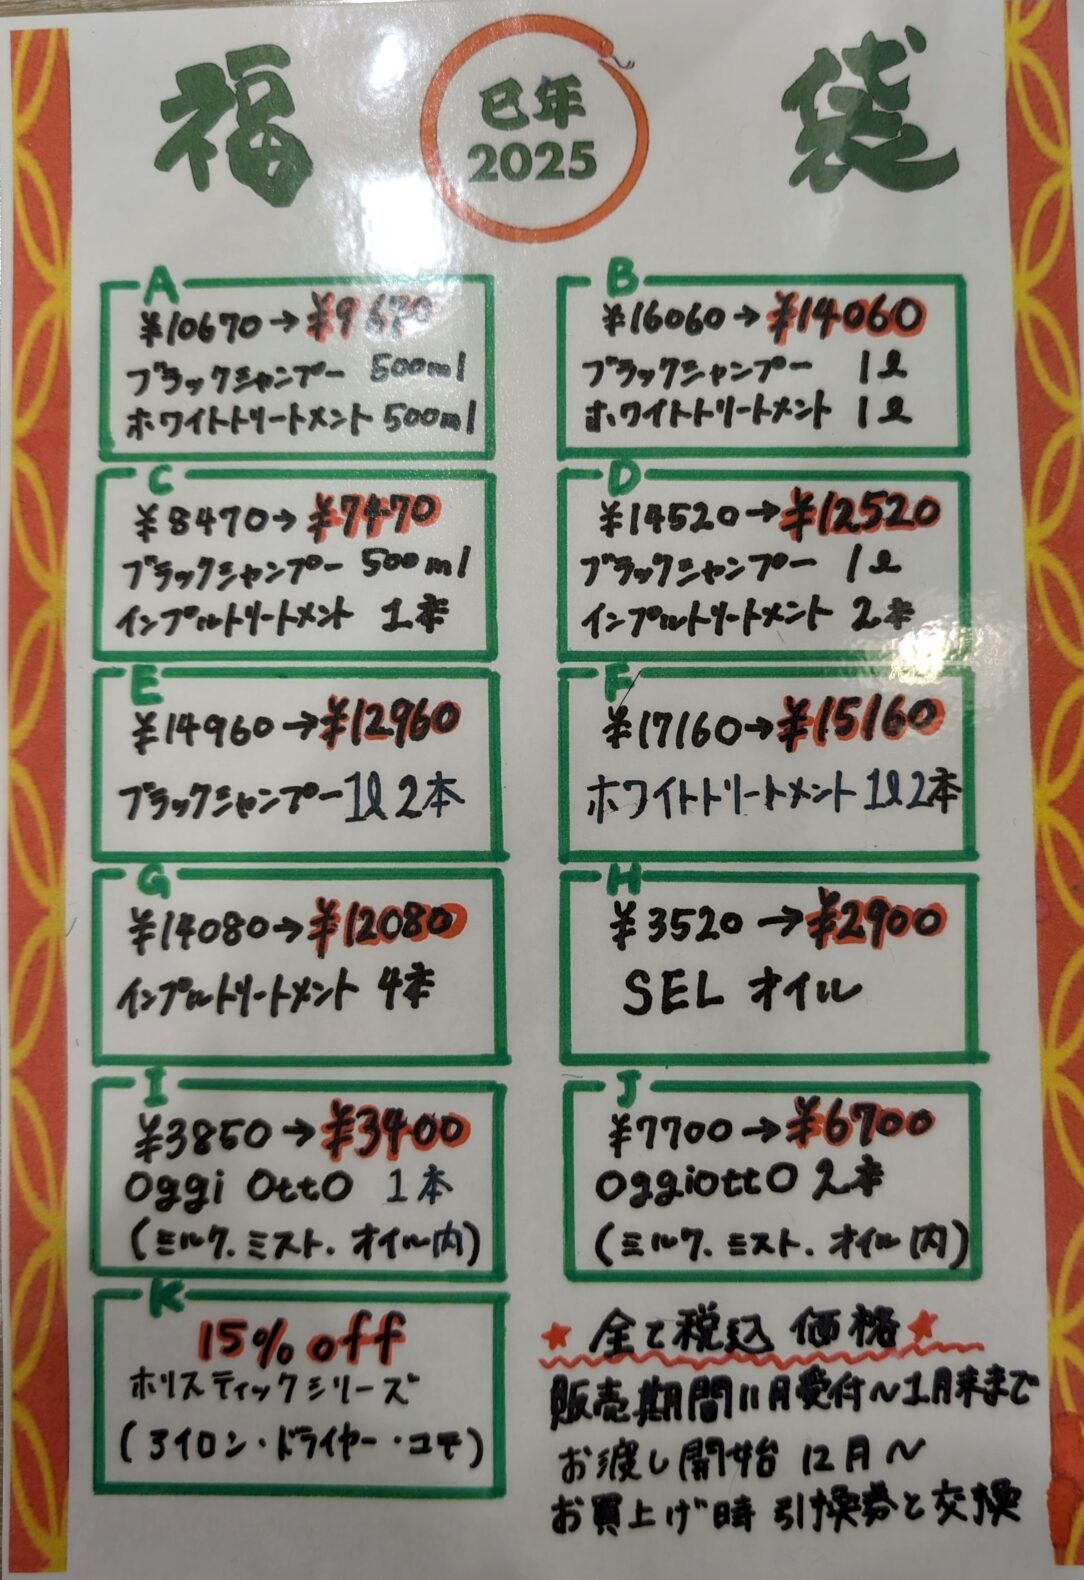 福
巳年
2025
袋
A
¥10670→¥9670
ブラックシャンプー 500ml
ホワイトトリートメント 500ml
B
¥16060→¥14060
ブラックシャンプー 1ℓ
ホワイトトリートメント 1ℓ
C
¥8470→¥7470
ブラックシャンプー 500ml
インプルトリートメント 1本
D
¥14520→¥12520
ブラックシャンプー 1ℓ
インプルトリートメント 2本
E
¥14960→¥12960
ブラックシャンプー1ℓ 2本
F
¥17160→¥15160
ホワイトトリートメント 1ℓ2本
G
¥14080→¥12080
インプルトリートメント 4本
H
¥3520→¥2900
SEL オイル
I
¥3850→¥3400
Oggi OttO 1本
(ミルク.ミスト.オイル内)
J
¥7700→¥6700
OggiottO 2本
(ミルク.ミスト.オイル内)
K
15% off
ホリスティックシリーズ
(アイロン・ドライヤー・コテ)
★全て税込価格★
販売期間11月受付〜1月末まで
お渡し開始 12月〜
お買上げ時 引換券と交換